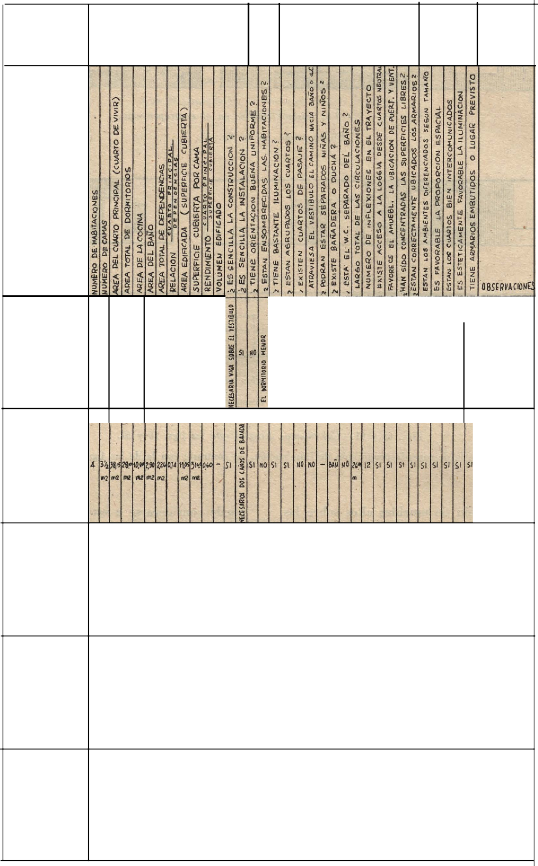 NUMERO DE HABITACIONES
NUMERO DE CAMAS
AREA DEL CUARTO PRINCIPAL (CUARTO DE VIVIR)
AREA TOTAL DE DORMITORIOS
AREA DE LA COCINA
AREA DEL BAÑO
AREA TOTAL DE DEPENDENCIAS
RELACION CUARTO PRINCIPAL DEPENDENCIAS
AREA EDIFICADA (SUPERFICIE CUBIERTA)
SUPERFICIE CUBIERTA POR CAMA
RENDIMIENTO CUARTO PRINCIPAL SUPERFICIE CUBIERTA
VOLUMEN EDIFICADO
¿ES SENCILLA LA CONSTRUCCION?
¿ES SENCILLA LA INSTALACION?
¿TIENE ORIENTACION BUENA UNIFORME?
¿ESTAN ENSOMBRECIDAS LAS HABITACIONES?
¿TIENE BASTANTE ILUMINACION?
¿ESTAN AGRUPADOS LOS CUARTOS?
¿EXISTEN CUARTOS DE PASAJE?
ATRAVIESA EL VESTIBULO EL CAMINO HACIA BAÑO O
¿PODRAN ESTAR SEPARADOS NIÑAS Y NIÑOS?
¿EXISTE BAÑADERA O DUCHA?
¿ESTA EL W.C. SEPARADO DEL BAÑO?
LARGO TOTAL DE LAS CIRCULACIONES
NUMERO DE INFLEXIONES EN EL TRAYECTO
EXISTE ACCESO A LA LOGGIA DESDE CUARTOS NEUTRAL
FAVORECE EL AMUEBL. LA UBICACION DE PUERT. Y VENT.
¿HAN SIDO CONCENTRADAS LAS SUPERFICIES LIBRES?
¿ESTAN CORRECTAMENTE UBICADOS LOS ARMARIOS?
ESTAN LOS AMBIENTES DIFERENCIADOS SEGUN TAMAÑO
ES FAVORABLE LA PROPORCION ESPACIAL
ESTAN LOS CUARTOS BIEN INTERCOMUNICADOS
ES ESTETICAMENTE FAVORABLE LA ILUMINACION
TIENE ARMARIOS EMBUTIDOS O LUGAR PREVISTO
OBSERVACIONES
NECESARIA VIGA SOBRE EL VESTIBULO
SO
NE
EL DORMITORIO MENOR
4
m2
m2
m2
m2
m2
m2
–
SI
NECESARIOS DOS CAÑOS DE BAJADA
SI
NO
SI
SI
NO
NO
–
BAÑ
NO
m
12
SI
SI
SI
SI
SI
SI
SI
SI
SI